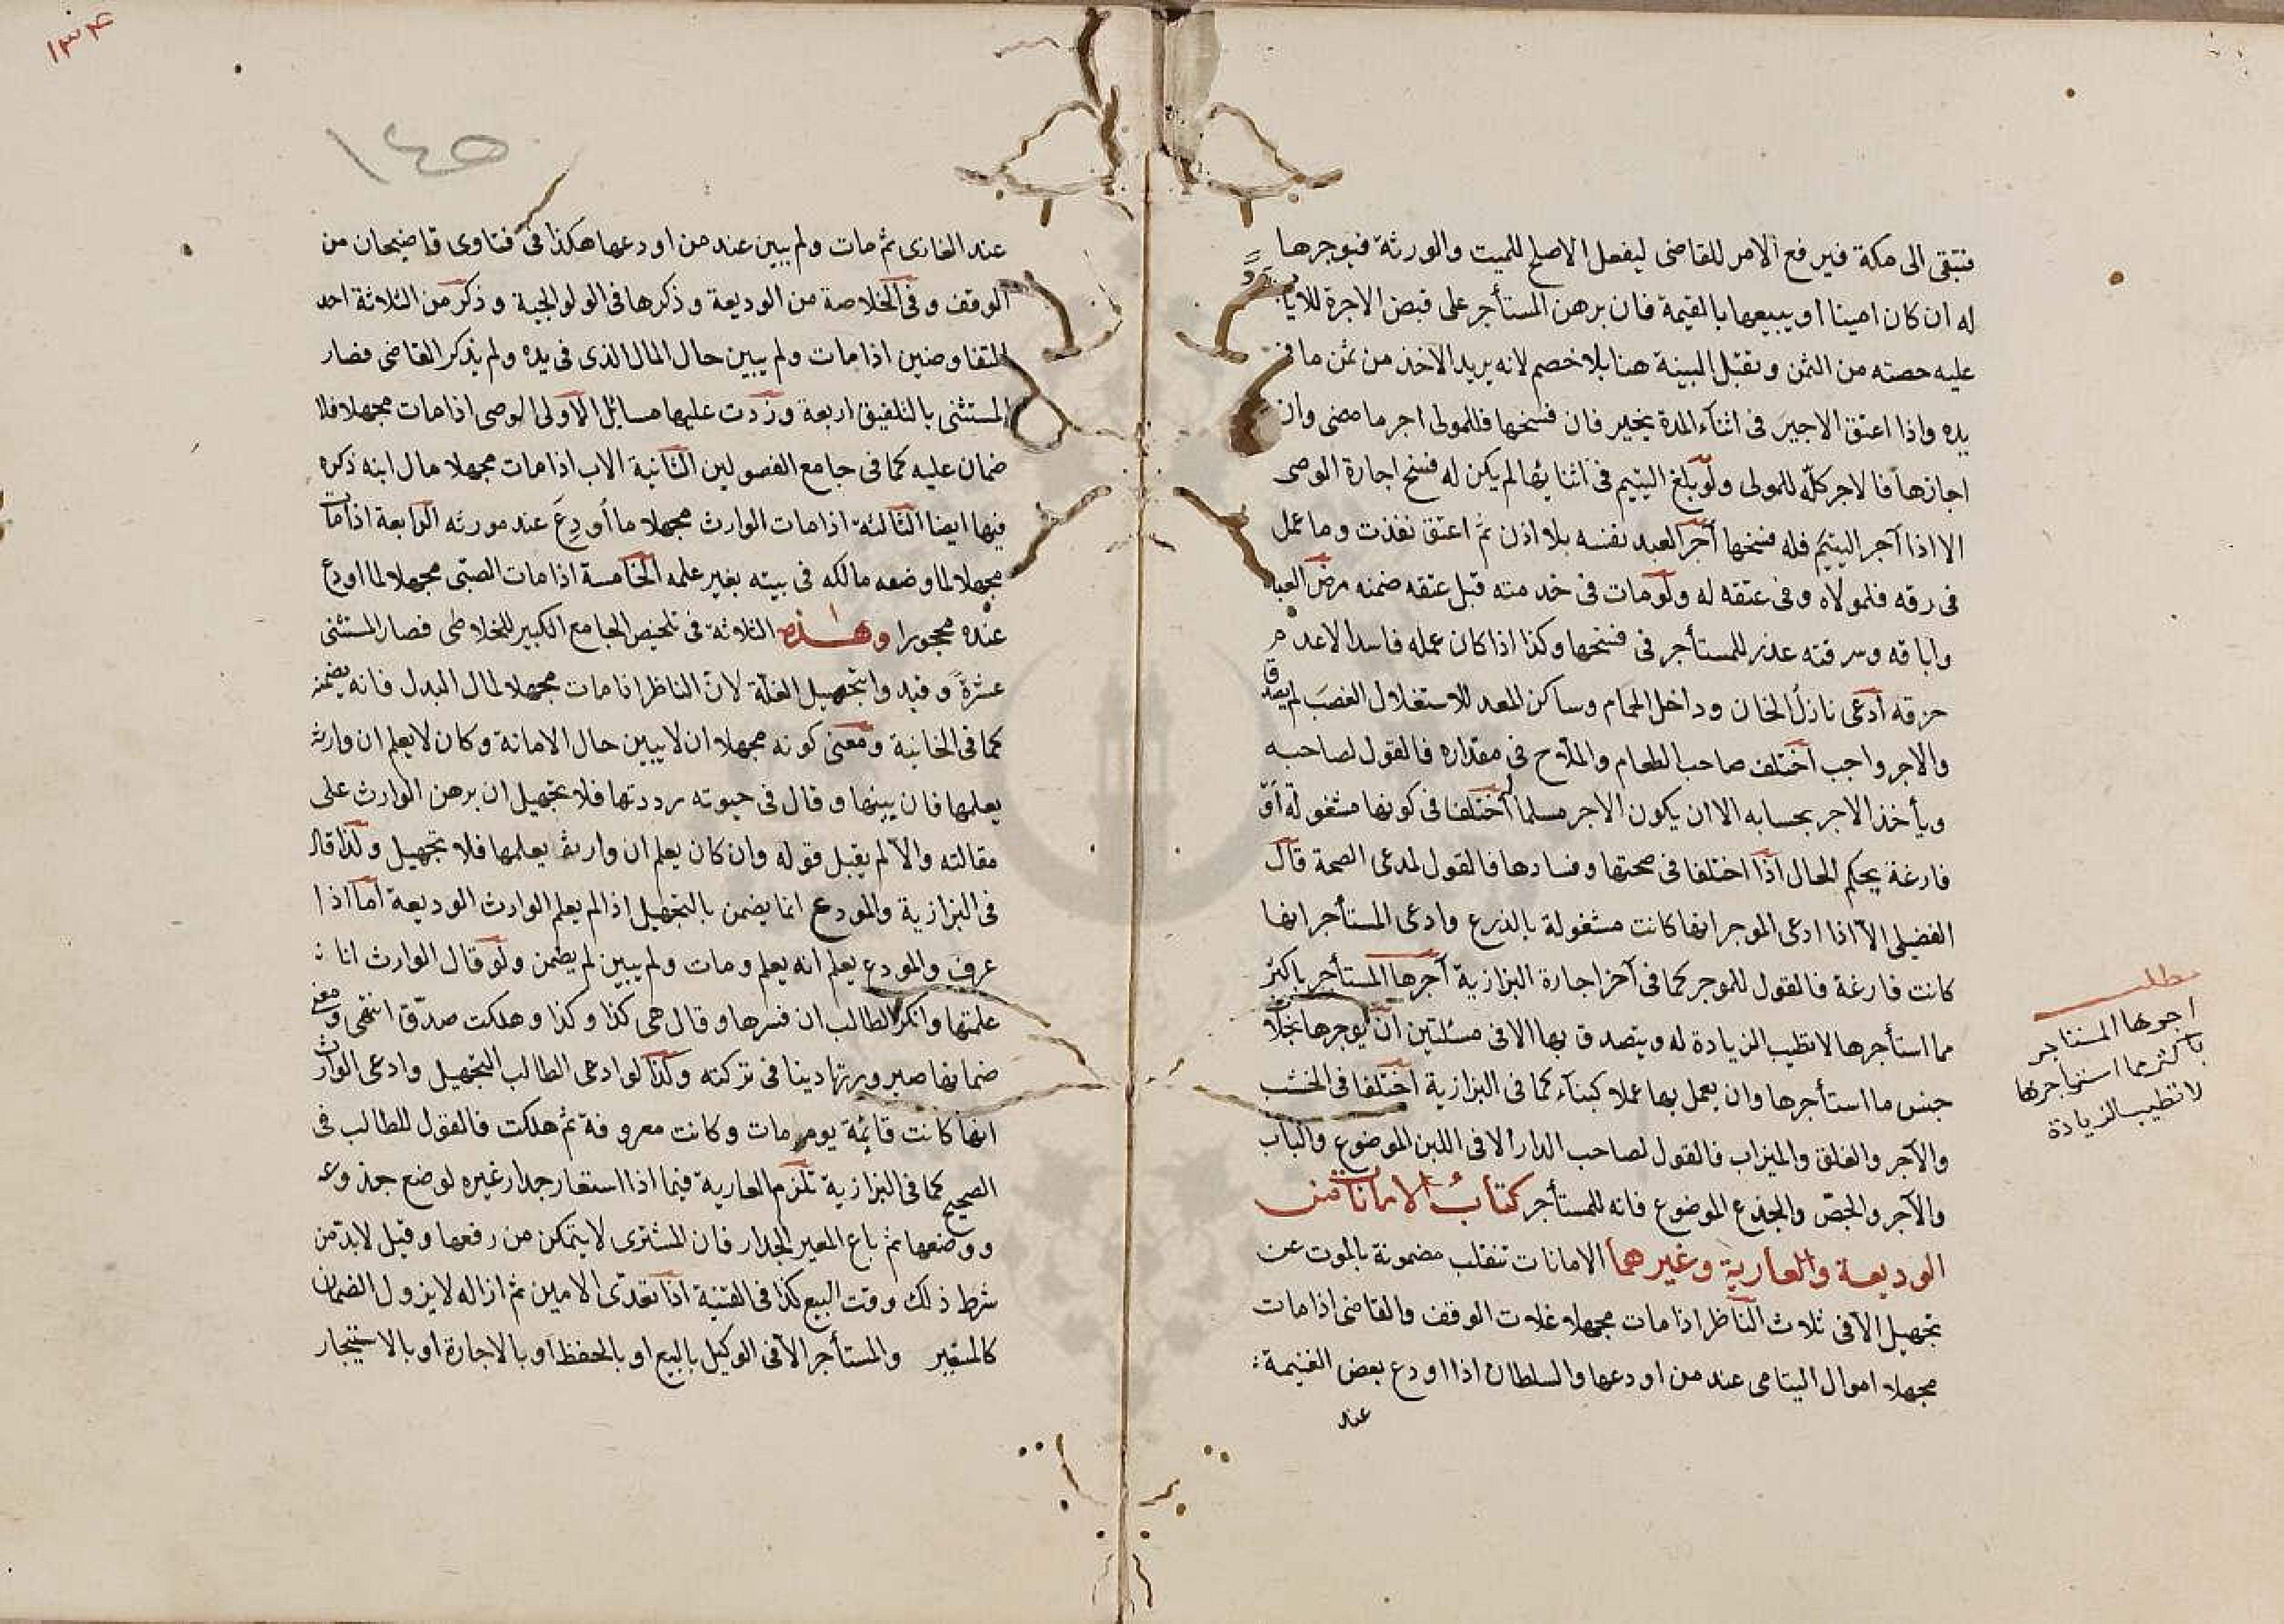 فتبقى الى مكة فيرفع الامر للقاضى ليفعل الاصلح للميت والورثة فيوجرها
له ان كان امينا او يبيعها بالقيمة فان برهن المستأجر على قبض الاجرة للاياب رد
عليه حصته من الثمن وتقبل البينة هنا بلا خصم لانه يريد الاخذ من ثمن ما فى
يده واذا اعتق الاجير فى اثناء المدة يخير فان فسخها فللمولى اجر ما مضى وان
اجازها فالاجر كله للمولى ولو بلغ اليتيم فى اثنائها لم يكن له فسخ اجارة الوصى
الا اذا آجر اليتيم فله فسخها آجر العبد نفسه بلا اذن ثم اعتق نفذت وما عمل
فى رقه فلمولاه وفى عتقه له ولو مات فى خدمته قبل عتقه ضمنه مرض العبد
واباقه وسرقته عذر للمستأجر فى فسخها وكذا اذا كان عمله فاسدا لا عدم
حزقه ادعى نازل الخان وداخل الحمام وساكن المعد للاستغلال الغصب لم يصدق
والاجر واجب اختلف صاحب الطعام والملاح فى مقداره فالقول لصاحبه
ويأخذ الاجر بحسابه الا ان يكون الاجر مسلما اختلفا فى كونها مشغولة او
فارغة يحكم الحال اذا اختلفا فى صحتها وفسادها فالقول لمدعى الصحة قال
الفضيلى الا اذا ادعى الموجر انها كانت مشغولة بالذرع وادعى المستأجر انها
كانت فارغة فالقول للموجر كما فى آخر اجارة البزازية آجرها المستأجر باكثر
مما استأجرها لا تطيب الزيادة له ويتصدق بها الا فى مسئلتين ان يوجرها بخلاف
جنس ما استأجرها وان يعمل بها عملا كبناء كما فى البزازية اختلفا فى الخشب
والآجر والغلق والميزاب فالقول لصاحب الدار الا فى اللبن الموضوع والباب
والآجر والجص والجذع الموضوع فانه للمستأجر كتاب الامانات من
الوديعة والعارية وغيرهما الامانات تنقلب مضمونة بالموت عن
تجهيل الا فى ثلاث الناظر اذا مات مجهلا غلات الوقف والقاضى اذا مات
مجهلا اموال اليتامى عند من اودعها والسلطان اذا اودع بعض الغنيمة
عند
مطلب
اجرها المستاجر
باكثر مما استاجرها
لا تطيب الزيادة
١٣٤
١٤٥
عند الغازى ثم مات ولم يبين عند من اودعها هكذا فى فتاوى قاضيخان من
الوقف وفى الخلاصة من الوديعة وذكرها فى الولوالجية وذكر من الثلاثة احد
المتفاوضين اذا مات ولم يبين حال المال الذى فى يده ولم يذكر القاضى فصار
المستثنى بالتلفيق اربعة وزدت عليها مسائل الاولى الوصى اذا مات مجهلا فلا
ضمان عليه كما فى جامع الفصولين الثانية الاب اذا مات مجهلا مال ابنه ذكره
فيها ايضا الثالثة اذا مات الوارث مجهلا ما أودع عند مورثه الرابعة اذا مات
مجهلا لما وضعه مالكه فى بيته بغير علمه الخامسة اذا مات الصبى مجهلا لما اودع
عنده محجورا وهذه الثلاثة فى تلخيص الجامع الكبير للخلاطى فصار المستثنى
عشرة وقيد وا بتجهيل الغلة لان الناظر اذا مات مجهلا لمال البدل فانه يضمنه
كما فى الخانية ومعنى كونه مجهلا ان لا يبين حال الامانة وكان لا يعلم ان وارثه
يعلمها فان بينها وقال فى حيوته رددتها فلا تجهيل ان برهن الوارث على
مقالته والا لم يقبل قوله وان كان يعلم ان وارثه يعلمها فلا تجهيل ولذا قال
فى البزازية والمودع انما يضمن بالتجهيل اذا لم يعلم الوارث الوديعة اما اذا
عرف والمودع يعلم انه يعلم ومات ولم يبين لم يضمن ولو قال الوارث انا
علمتها وانكر الطالب ان فسرها وقال هى كذا وكذا وهلكت صدق انتهى ومعنى
ضمانها صيرورتها دينا فى تركته وكذا لو ادعى الطالب التجهيل وادعى الوارث
انها كانت قائمة يوم مات وكانت معروفة ثم هلكت فالقول للطالب فى
الصحيح كما فى البزازية تلزم العارية فيما اذا استعار جدار غيره لوضع جذوعه
ووضعها ثم باع المعير الجدار فان المشترى لا يتمكن من رفعها وقيل لا بد من
شرط ذلك وقت البيع كذا فى القنية اذا تعدى الامين ثم ازاله لا يزول الضمان
كالمستعير والمستأجر الا فى الوكيل بالبيع او بالحفظ او بالاجارة او بالاستيجار